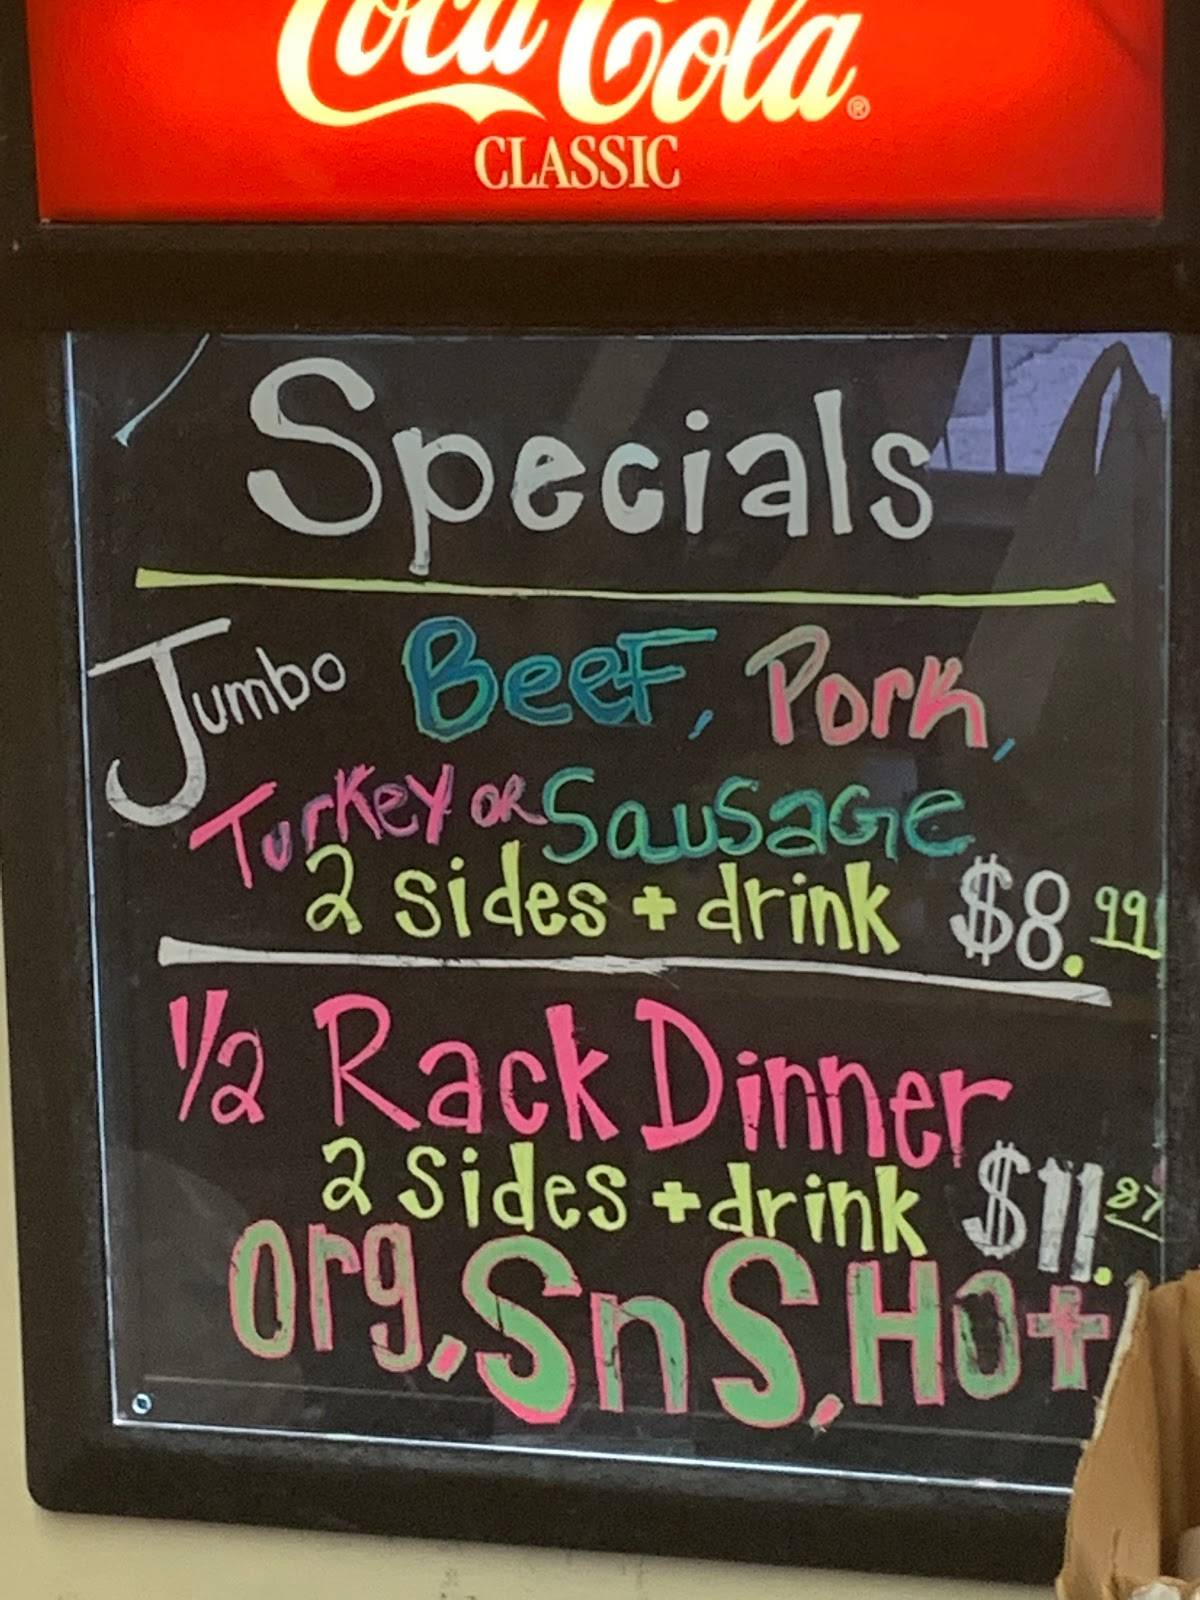 Coca-Cola®
CLASSIC
Specials
Jumbo BeeF, Pork,
Turkey or Sausage
2 sides + drink $8.99
1/2 Rack Dinner
2 sides + drink $11.87
Org, SnS, Hot